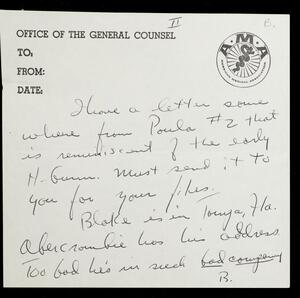 II
B.
OFFICE OF THE GENERAL COUNSEL
A.M.A
AMERICAN MEDICAL ASSOCIATION
TO:
FROM:
DATE:
I have a letter some
where from Paula #2 that
is reminiscent of the early
H. Gunn. Must send it to
you for your files.
Blake is in Tampa, Fla.
Abercrombie has his address
Too bad he's in such bad company
B.